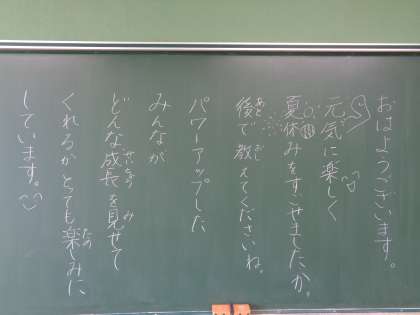 おはようございます。
元気に楽しく
夏休みをすごせましたか。
後で教えてくださいね。
パワーアップした
みんなが
どんな成長を見せて
くれるかとっても楽しみに
しています。